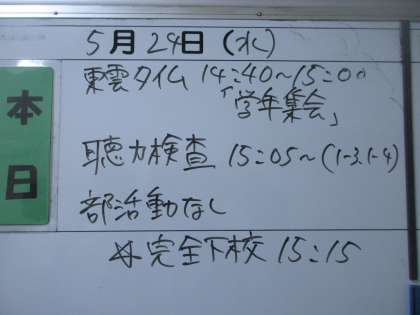 本日
5月24日(水)
東雲タイム 14:40～15:00
「学年集会」
聴力検査 15:05～(1-3,1-4)
部活動なし
☆完全下校 15:15